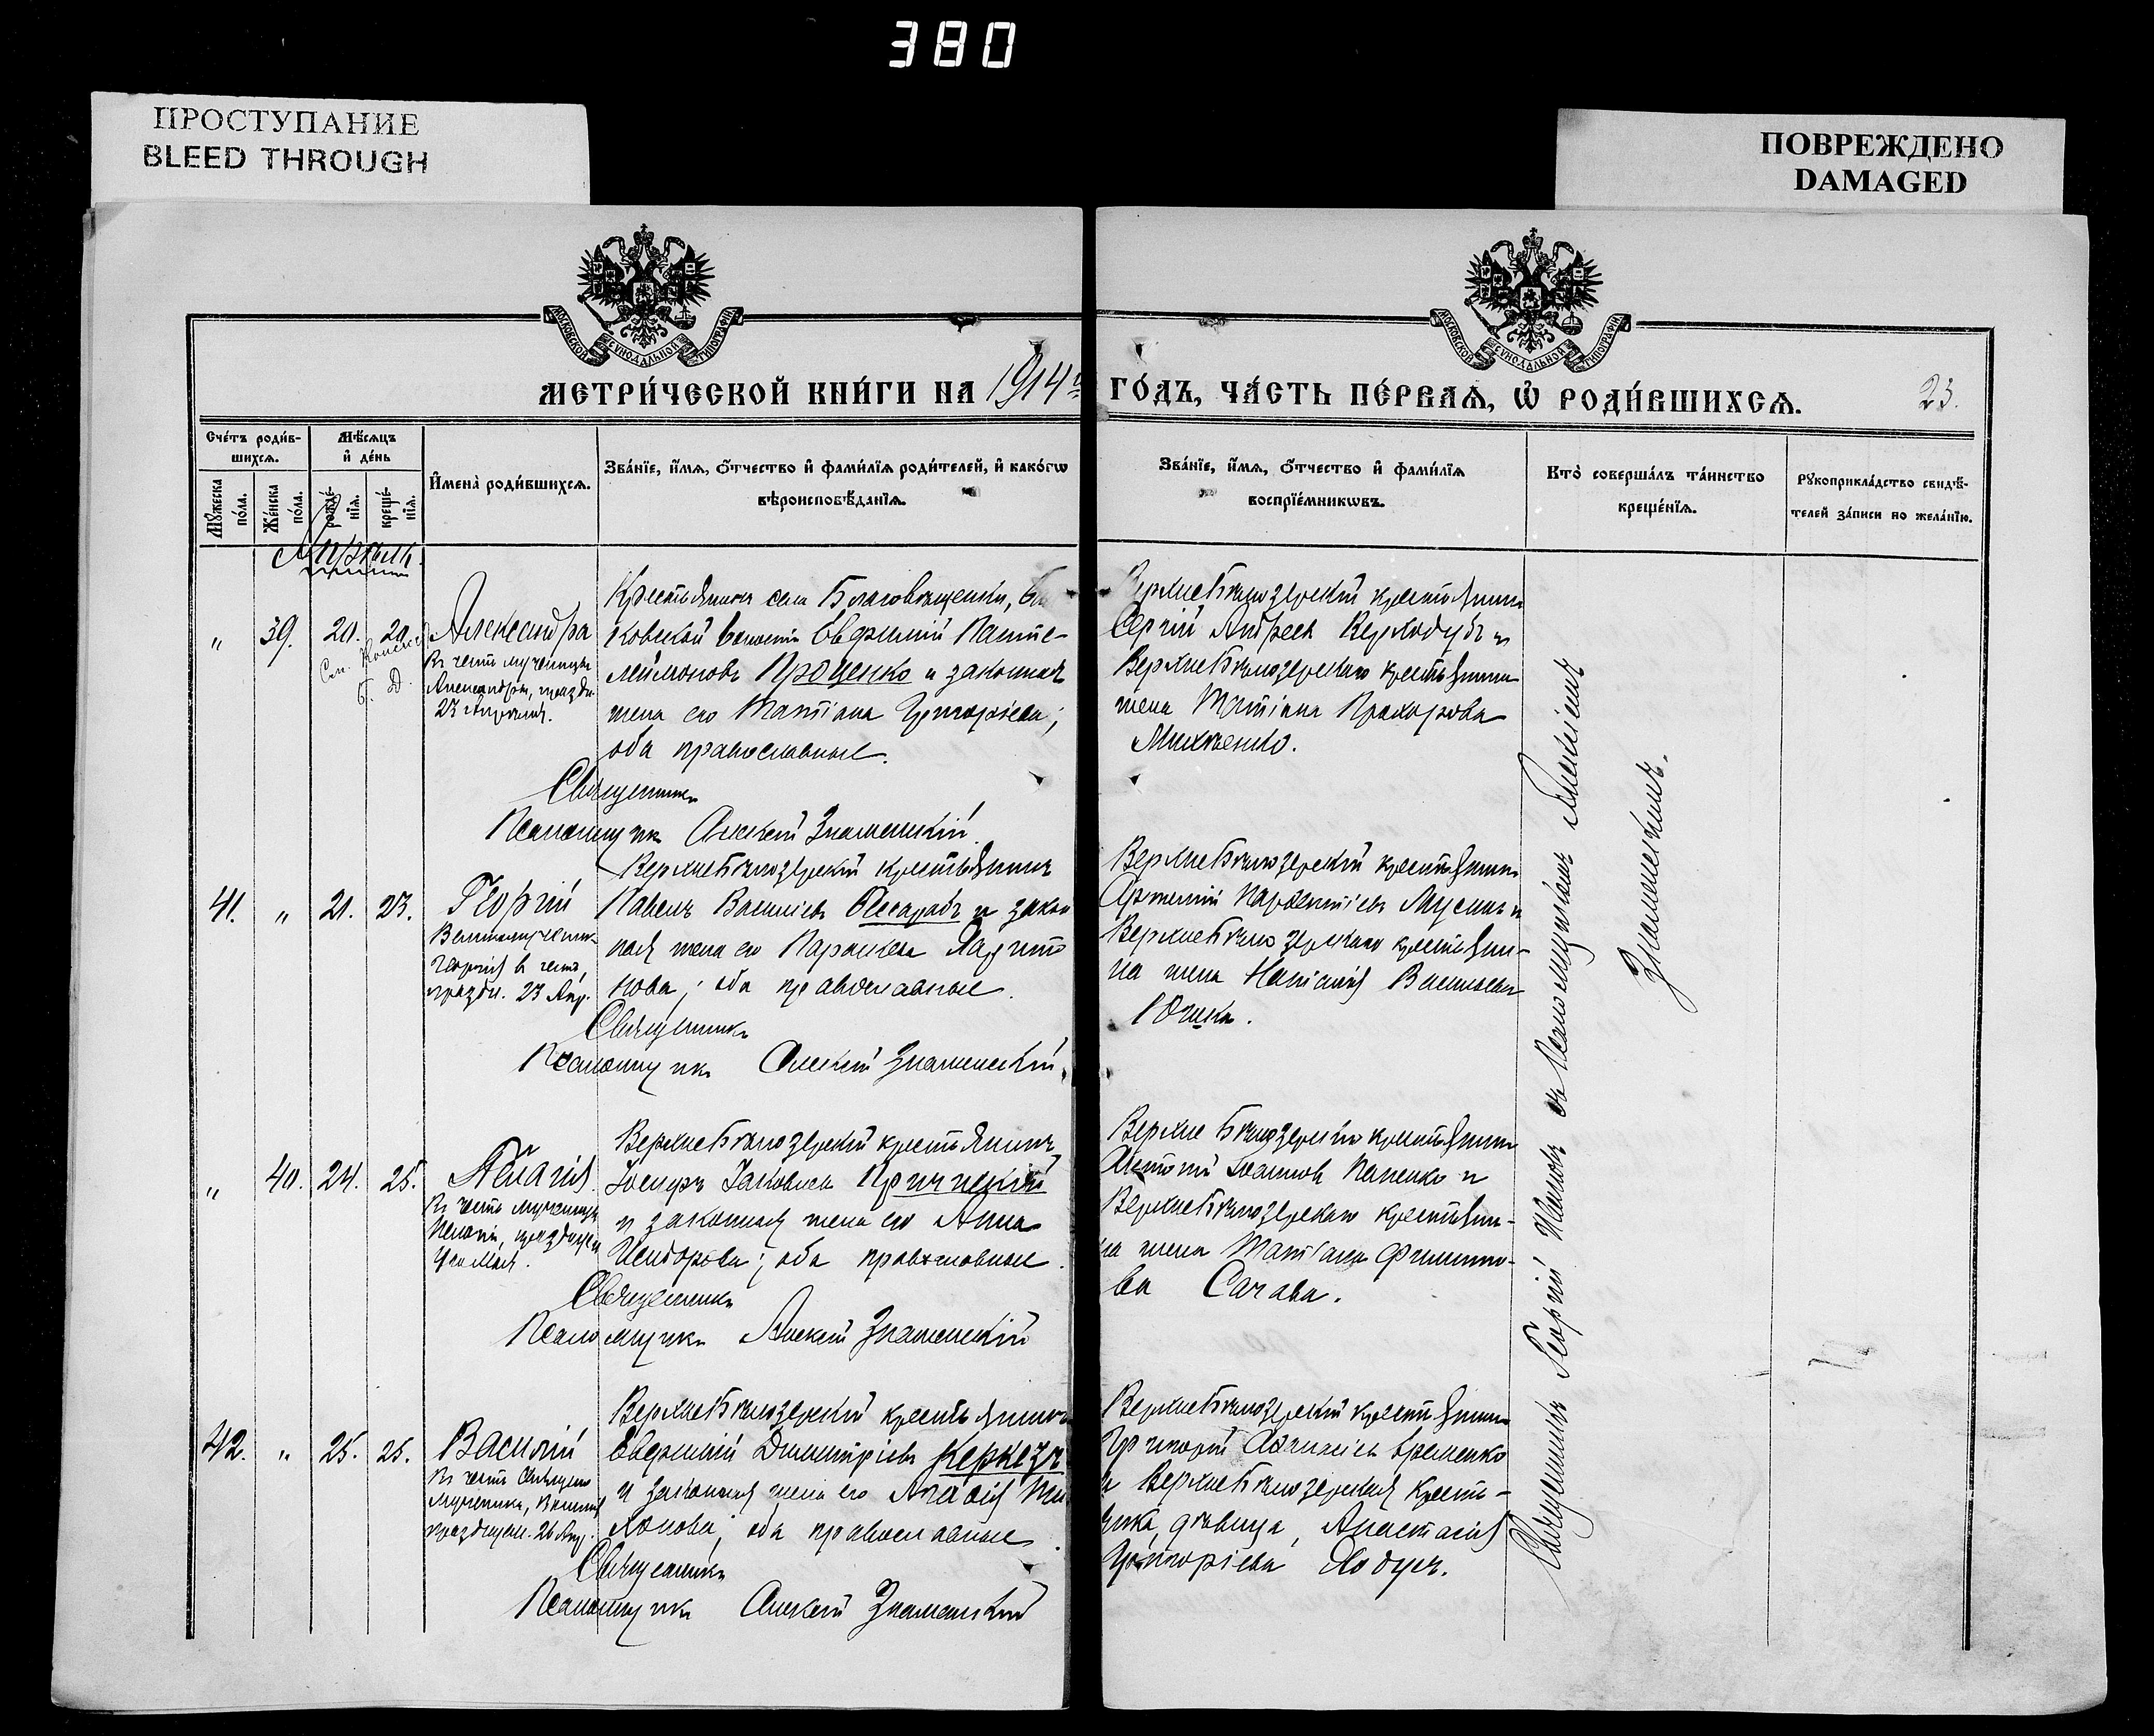 380
ПРОСТУПАНИЕ
BLEED THROUGH
ПОВРЕЖДЕНО
DAMAGED
МОСКОВСКОЙ СѴНОДАЛЬНОЙ ТИПОГРАФІИ
МОСКОВСКОЙ СѴНОДАЛЬНОЙ ТИПОГРАФІИ
МЕТРИ́ЧЕСКОЙ КНИ́ГИ НА 1914й ГО́ДЪ, ЧА́СТЬ ПЕ́РВАѦ, Ѿ РОДИ́ВШИХСѦ.
23.
Сче́тъ роди́в-
шихсѧ.
Мꙋ́жеска
по́ла.
Же́нска
по́ла.
Мѣ́сѧцъ
и҆ де́нь
рожде́-
нїѧ.
креще́-
нїѧ.
И҆мена̀ роди́вшихсѧ.
Зва́нїе, и҆́мѧ, ѻ҆́тчество и҆ фами́лїѧ роди́телей, и҆ како́гѡ
вѣроисповѣ́данїѧ.
Зва́нїе, и҆́мѧ, ѻ҆́тчество и҆ фами́лїѧ
воспрїе́мникѡвъ.
Кто̀ соверша́лъ та́инство
креще́нїѧ.
Рꙋкоприкла́дство свидѣ́-
телей за́писи по жела́нїю.
Апрѣль.
" 39. 20. 20. Александра
Въ честь мученицы
Александры, праздн.
23 Апрѣля.
Крестьянинъ села Благовѣщенки,
ковской волости Евфимій Панте-
леймоновъ Проценко и законная
жена его Татіана Григорьева;
оба православные.
Священникъ
Псаломщикъ Алексѣй Знаменскій
Верхнебѣлозерскій крестьянинъ
Сергій Андреевъ Верходубъ и
Верхнебѣлозерскаго крестьянина
жена Татіана Прохорова
Михненко.
41. " 21. 23. Георгій
Великомученика
Георгія въ честь,
праздн. 23 Апр.
Верхнебѣлозерскій крестьянинъ
Павелъ Васильевъ Бессарабъ и закон
ная жена его Параскева Харито
нова; оба православные.
Священникъ
Псаломщикъ Алексѣй Знаменскій.
Верхнебѣлозерскій крестьянинъ
Артемій Парфентіевъ и
Верхнебѣлозерскаго крестьяни-
на жена Наталія Васильева
" 40. 24. 25. Пелагія
Въ честь мученицы
Пелагіи, празднуем
4го Мая.
Верхнебѣлозерскій крестьянинъ
Іосифъ Іаковлевъ
и законная жена его Анна
Исидорова; оба православные.
Священникъ
Псаломщикъ Алексѣй Знаменскій
Верхнебѣлозерскій крестьянинъ
Антоній Іоанновъ Папенко и
Верхнебѣлозерскаго крестьяни-
на жена Татіана Филиппо-
ва Сачава.
42. " 25. 25. Василій
Въ честь Священно
мученика, Василія
празднуем. 26 Апр.
Верхнебѣлозерскій крестьянинъ
Евфимій Димитріевъ Керкезъ
и законная жена его Агафія Ти
хонова; оба православные.
Священникъ
Псаломщикъ Алексѣй Знаменскій
Верхнебѣлозерскій крестьянинъ
Григорій Аѳанасіевъ Еременко
и Верхнебѣлозерская кресть-
янка, дѣвица, Анастасія
Григоріева
Священникъ Георгій съ Псаломщикомъ Алексіемъ
Знаменскимъ.